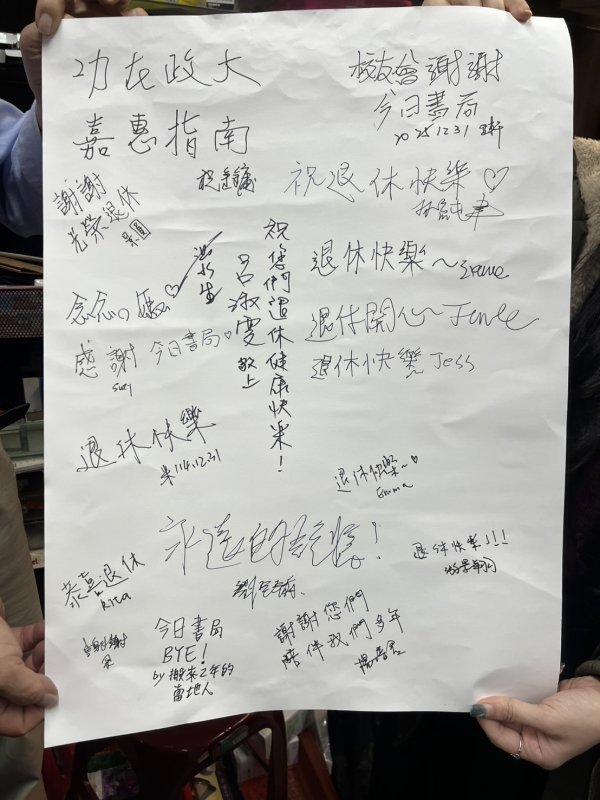 功在政大
嘉惠指南
校友會謝謝
今日書局
2025.12.31
謝謝
光榮退休
祝退休快樂♡
祝您們退休健康快樂！
呂淑雯 敬上
退休快樂～
念念
感謝 今日書局♡
Suzy
退休開心～
退休快樂 Jess
退休快樂
114.12.31
退休快樂～♡
Emma
永遠的
恭喜退休
Rita
退休快樂!!!
謝謝
今日書局
BYE!
by 搬來2年的
當地人
謝謝您們
陪伴我們多年